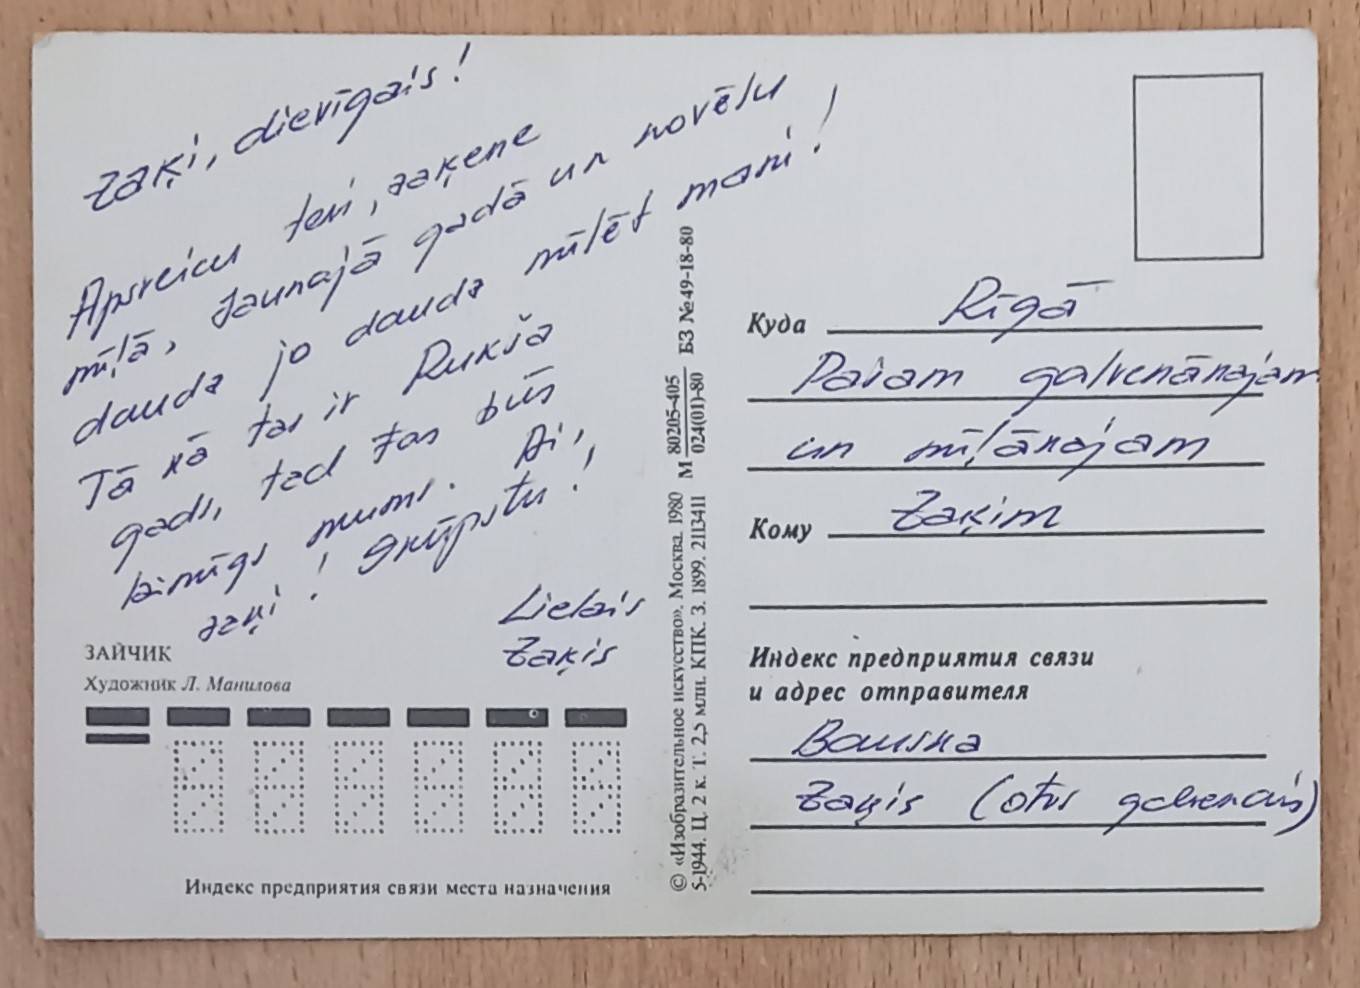 Zaķi, dievīgais!
Apsveicu tevi, zaķene
mīļā, Jaunajā gadā un novēlu
daudz jo daudz mīlēt mani!
Tā kā tas ir Rukša
gads, tad tas būs
laimīgs mums. Ai,
zaķi! Skūpstu!
Lielais
Zaķis
ЗАЙЧИК
Художник Л. Манилова
Индекс предприятия связи места назначения
© «Изобразительное искусство». Москва. 1980
5-1944. Ц. 2 к. Т. 2,5 млн. КПК. З. 1899. 2113411
М 80205-405
024(01)-80 БЗ №49-18-80
Куда Rīgā
Pašam galvenānajam
un mīļānajam
Кому Zaķim
Индекс предприятия связи
и адрес отправителя
Bauska
Zaķis (otrs galvenais)